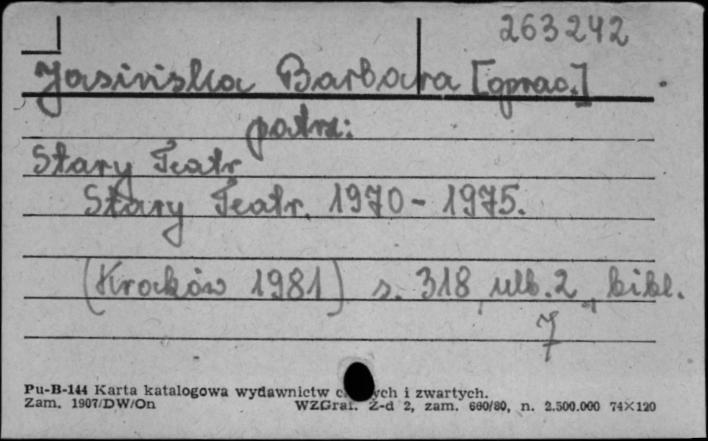 263242
Jasińska Barbara [oprac.]
patrz:
Stary Teatr
Stary Teatr. 1970-1975.
(Kraków 1981) s. 318, nlb. 2, bibl.
7
Pu-B-144 Karta katalogowa wydawnictw ych i zwartych.
Zam. 1907/DW/On WZGraf. Z-d 2, zam. 660/80, n. 2.500.000 74×120